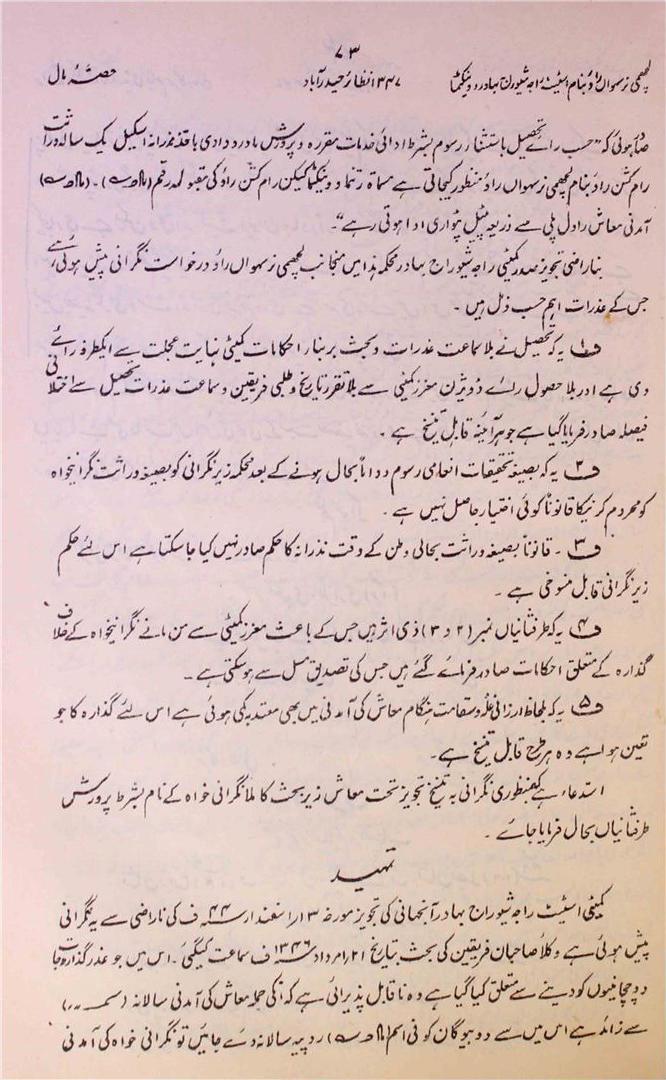 ۷۳
لچھمی نرسواں راؤ بنام اسٹیٹ راجہ شیوراج بہادر و وینکیما ۱۳۴۷ف نظائر حیدرآباد حصۂ مال
صادر ہوئی کہ "حسب رائے تحصیل باستثناء رسوم بشرط ادائی خدمات مقررہ و پرورش مادر و دادی باخذ نذرانہ اسکیل یک سالہ وراثت
رام کشن راؤ بنام لچھمی نرسہواں راؤ منظور کیجاتی ہے مسماۃ رتنما و وینکیما لیکن رام کشن راؤ کی مقبولہ رقم
آمدنی معاش راول پلی سے ذریعہ پٹیل پٹواری ادا ہوتی رہے"۔
بناراضی تجویز صدر کمیٹی راجہ شیوراج بہادر محکمہ ہذا میں منجانب لچھمی نرسہواں راؤ درخواست نگرانی پیش ہوئی ہے،
جس کے عذرات اہم حسب ذیل ہیں۔
ف۱ یہ کہ تحصیل نے بلا سماعت عذرات و بحث بر بناء احکامات کمیٹی نہایت عجلت سے ایکطرفہ رائے
دی ہے اور بلا حصول رائے ڈویژن معزز کمیٹی سے بلا تقرر تاریخ و طلبی فریقین و سماعت عذرات تحصیل سے اختلافی
فیصلہ صادر فرمایا گیا ہے جو ہر آئینہ قابل تنسیخ ہے۔
ف۲ یہ کہ بصیغہ تحقیقات انعامی رسوم دواماً بحال ہونے کے بعد محکمہ زیر نگرانی کو بصیغہ وراثت نگرانیخواہ
کو محروم کرنیکا قانوناً کوئی اختیار حاصل نہیں ہے۔
ف۳۔ قانوناً بصیغہ وراثت بحالی وطن کے وقت نذرانہ کا حکم صادر نہیں کیا جاسکتا ہے اس لئے حکم
زیر نگرانی قابل منسوخی ہے۔
ف۴ یہ کہ طرفثانیاں نمبر (۲ و ۳) ذی اثر ہیں جس کے باعث معزز کمیٹی سے من مانے نگرانیخواہ کے خلاف
گذارہ کے متعلق احکامات صادر فرمائے گئے ہیں جس کی تصدیق مسل سے ہوسکتی ہے۔
ف۵ یہ کہ بلحاظ ارزانی غلہ و سقامت ہنگام معاش کی آمدنی میں بھی معتدبہ کمی ہوئی ہے اس لئے گذارہ کا جو
تعین ہوا ہے وہ ہر طرح قابل تنسیخ ہے۔
استدعاء ہے کہ بمنظوری نگرانی بہ تنسیخ تجویز تحت معاش زیر بحث کاملاً نگرانی خواہ کے نام بشرط پرورش
طرفثانیاں بحال فرمایا جائے۔
تمہید
کمیٹی اسٹیٹ راجہ شیوراج بہادر آنجہانی کی تجویز مورخہ ۱۳/ اسفندار ۴۴ف کی ناراضی سے یہ نگرانی
پیش ہوئی ہے وکلاء صاحبان فریقین کی بحث بتاریخ ۲۱/ امرداد ۱۳۴۶ف سماعت کیگئی۔ اس میں جو عذر گذارہ جات
دو چچانیوں کو دینے سے متعلق کیا گیا ہے وہ ناقابل پذیرائی ہے کہ انکی جملہ معاش کی آمدنی سالانہ
سے زائد ہے اس میں سے دو بیوگان کو فی اسم روپیہ سالانہ دئے جائیں تو نگرانی خواہ کی آمدنی